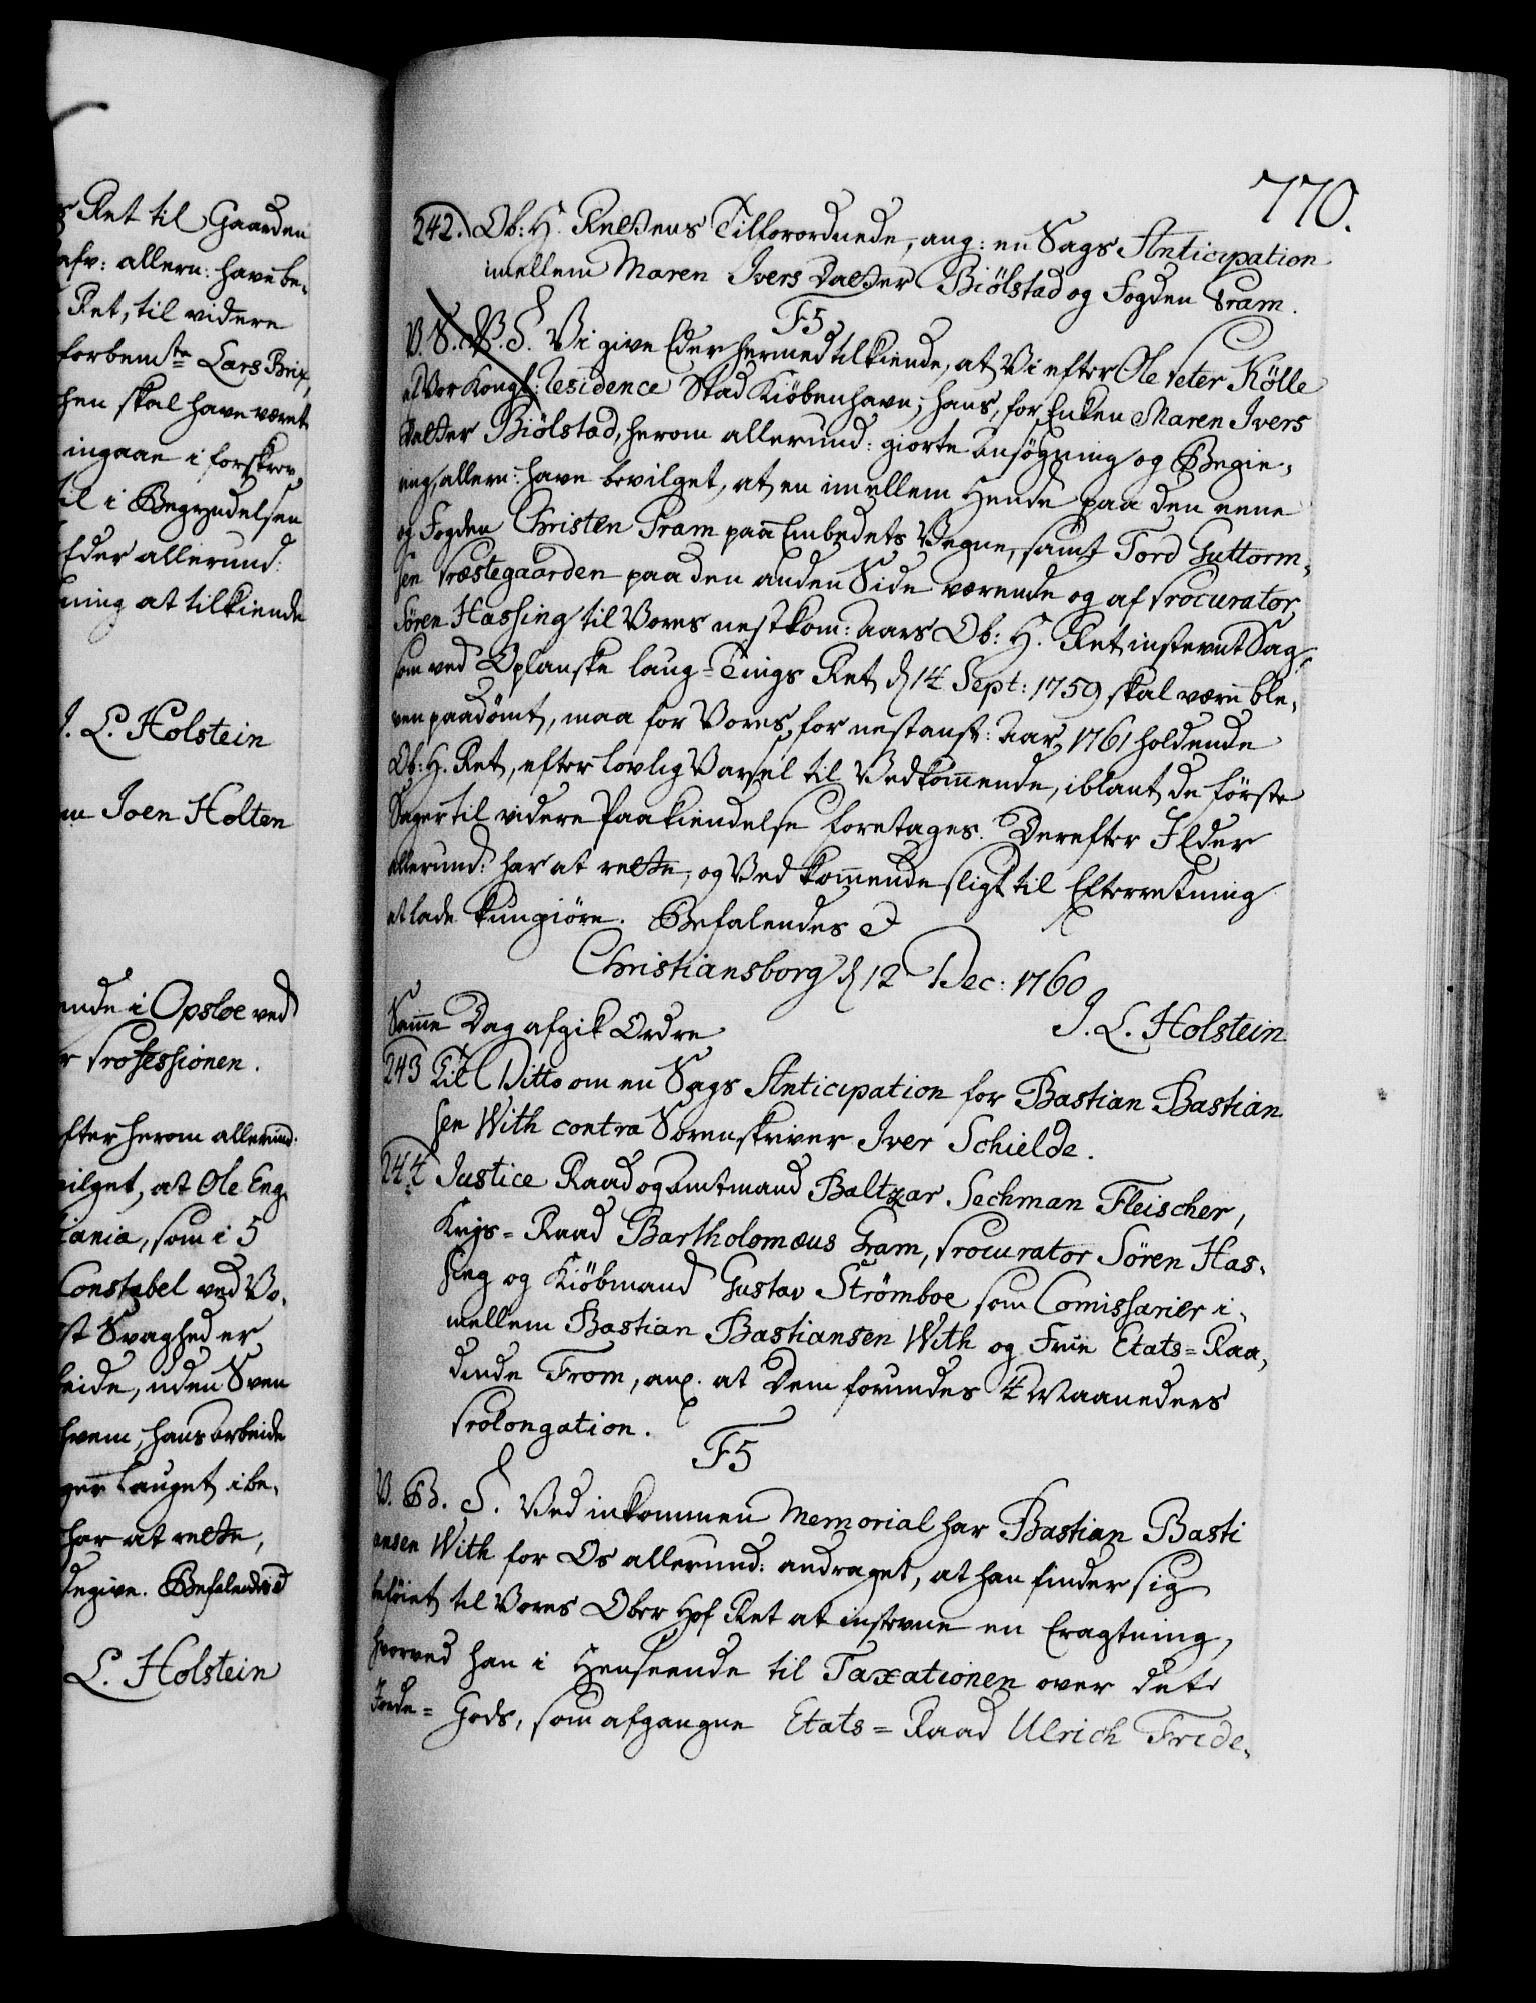 s Ret til Gaarden
afv: allern: have be-
Ret, til videre
forbemte Lars Brix,
hen skal have været
ingaae i forskrev
til i Begyndelsen
Eder allerund:
ning at tilkiende
J. L. Holstein
Joen Holten
ende i Opsloe ved
r Professionen.
efter herom allerund:
vilget, at Ole Eng-
tiania, som i 5
Constabel ved Vo-
st Svaghed er
beide, uden Sven
hvem, hans arbeide
Lauget i be-
har at rette,
degive. Befalendes
L. Holstein
770.
242. Ob: H. Rettens Tilforordnede, ang: en Sags Anticipation
imellem Maren Ivers Datter Biölstad og Fogden Pram.
F5
V. S. V. B. S. Vi give Eder hermed tilkiende, at Vi efter Ole Peter Kölle
Vor Kongl: Residence Stad Kiöbenhavn, hans, for Enken Maren Ivers
Datter Biölstad, herom allerund: giorte Ansögning og Begie-
ring, allern: have bevilget, at en imellem Hende paa den eene
og Fogden Christen Pram paa Embedets Vegne, samt Tord Guttorm-
sen Præstegaarden paa den anden Side værende og af Procurator
Sören Hassing til Vores nestkom: Aars Ob: H. Ret instevnt Sag,
som ved Oplanske Laug-Tings Ret d 14 Sept: 1759 skal være ble-
ven paadömt, maa for Vores, for nestanst: Aar 1761 holdende
Ob: H. Ret, efter lovlig Varsel til Vedkommende, iblant de förste
Sager til videre Paakiendelse foretages. Derefter I Eder
allerund: har at rette, og Vedkommende sligt til Efterretning
at lade kungiöre. Befalendes
Christiansborg d 12 Dec: 1760
J. L. Holstein
Samme Dag afgik Ordre
243 Til Ditto om en Sags Anticipation for Bastian Bastian
sen With contra Sorenskriver Iver Schielde.
244 Justice Raad og Amtmand Baltzar Sechman Fleischer,
Krigs-Raad Bartholomæus Gram, Procurator Sören Has-
sing og Kiöbmand Gustav Strömboe som Comissarier i-
mellem Bastian Bastiansen With og Frue Etats-Raa-
dinde From, ang. at Dem forundes 4 Maaneders
Prolongation.
F5
V. B. S. Ved inkommen Memorial har Bastian Basti
ansen With for Os allerund: andraget, at han finder sig
beföiet til Vores Ober Hof Ret at instevne en Eragtning,
hvorved han i Henseende til Taxationen over det
Jorde-Gods, som afgangne Etats-Raad Ulrich Fride-